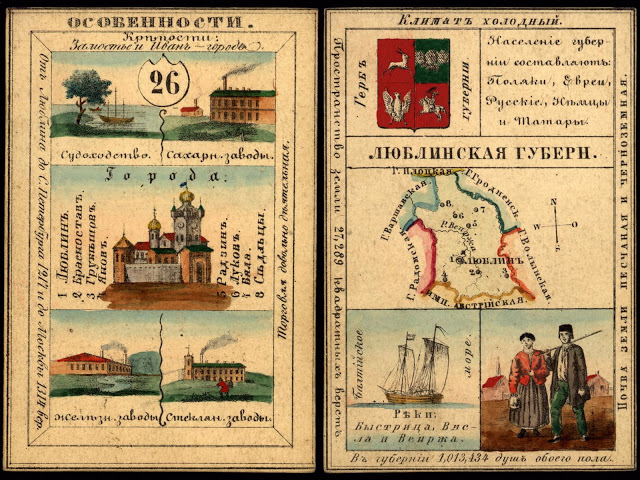 ОСОБЕННОСТИ.
Крѣпости:
Замостье и Иванъ-городъ.
26
Судоходство. Сахарн. заводы.
Города:
1 ЛЮБЛИНЪ.
2 Красноставъ.
4 Яновъ.
5 Радзинъ.
6 Луковъ.
7 Бяла.
8 Сѣдлѣцы.
желѣзн. заводы Стеклян. заводы.
Отъ Люблина до С. Петербурга и до Москвы вер.
Торговля довольно дѣятельная.
Климатъ холодный.
Гербъ
губерніи
Населеніе губер-
ніи составляютъ:
Поляки, Евреи,
Русскіе, Нѣмцы
и Татары.
ЛЮБЛИНСКАЯ ГУБЕРН.
Г. Плоцкая
Г. Гродненск.
Г. Варшавская
Г. Волынская.
Г. Радомская
Имп. Австрійская.
Р. Вепржа
ЛЮБЛИНЪ.
N
W
O
S
Балтійское
море.
РѢКИ:
Быстрица, Вис-
ла и Вепржа.
Въ губерніи 1,013,434 душъ обоего пола.
Пространство земли 27,289 квадратныхъ верстъ
Почва земли песчаная и черноземная.